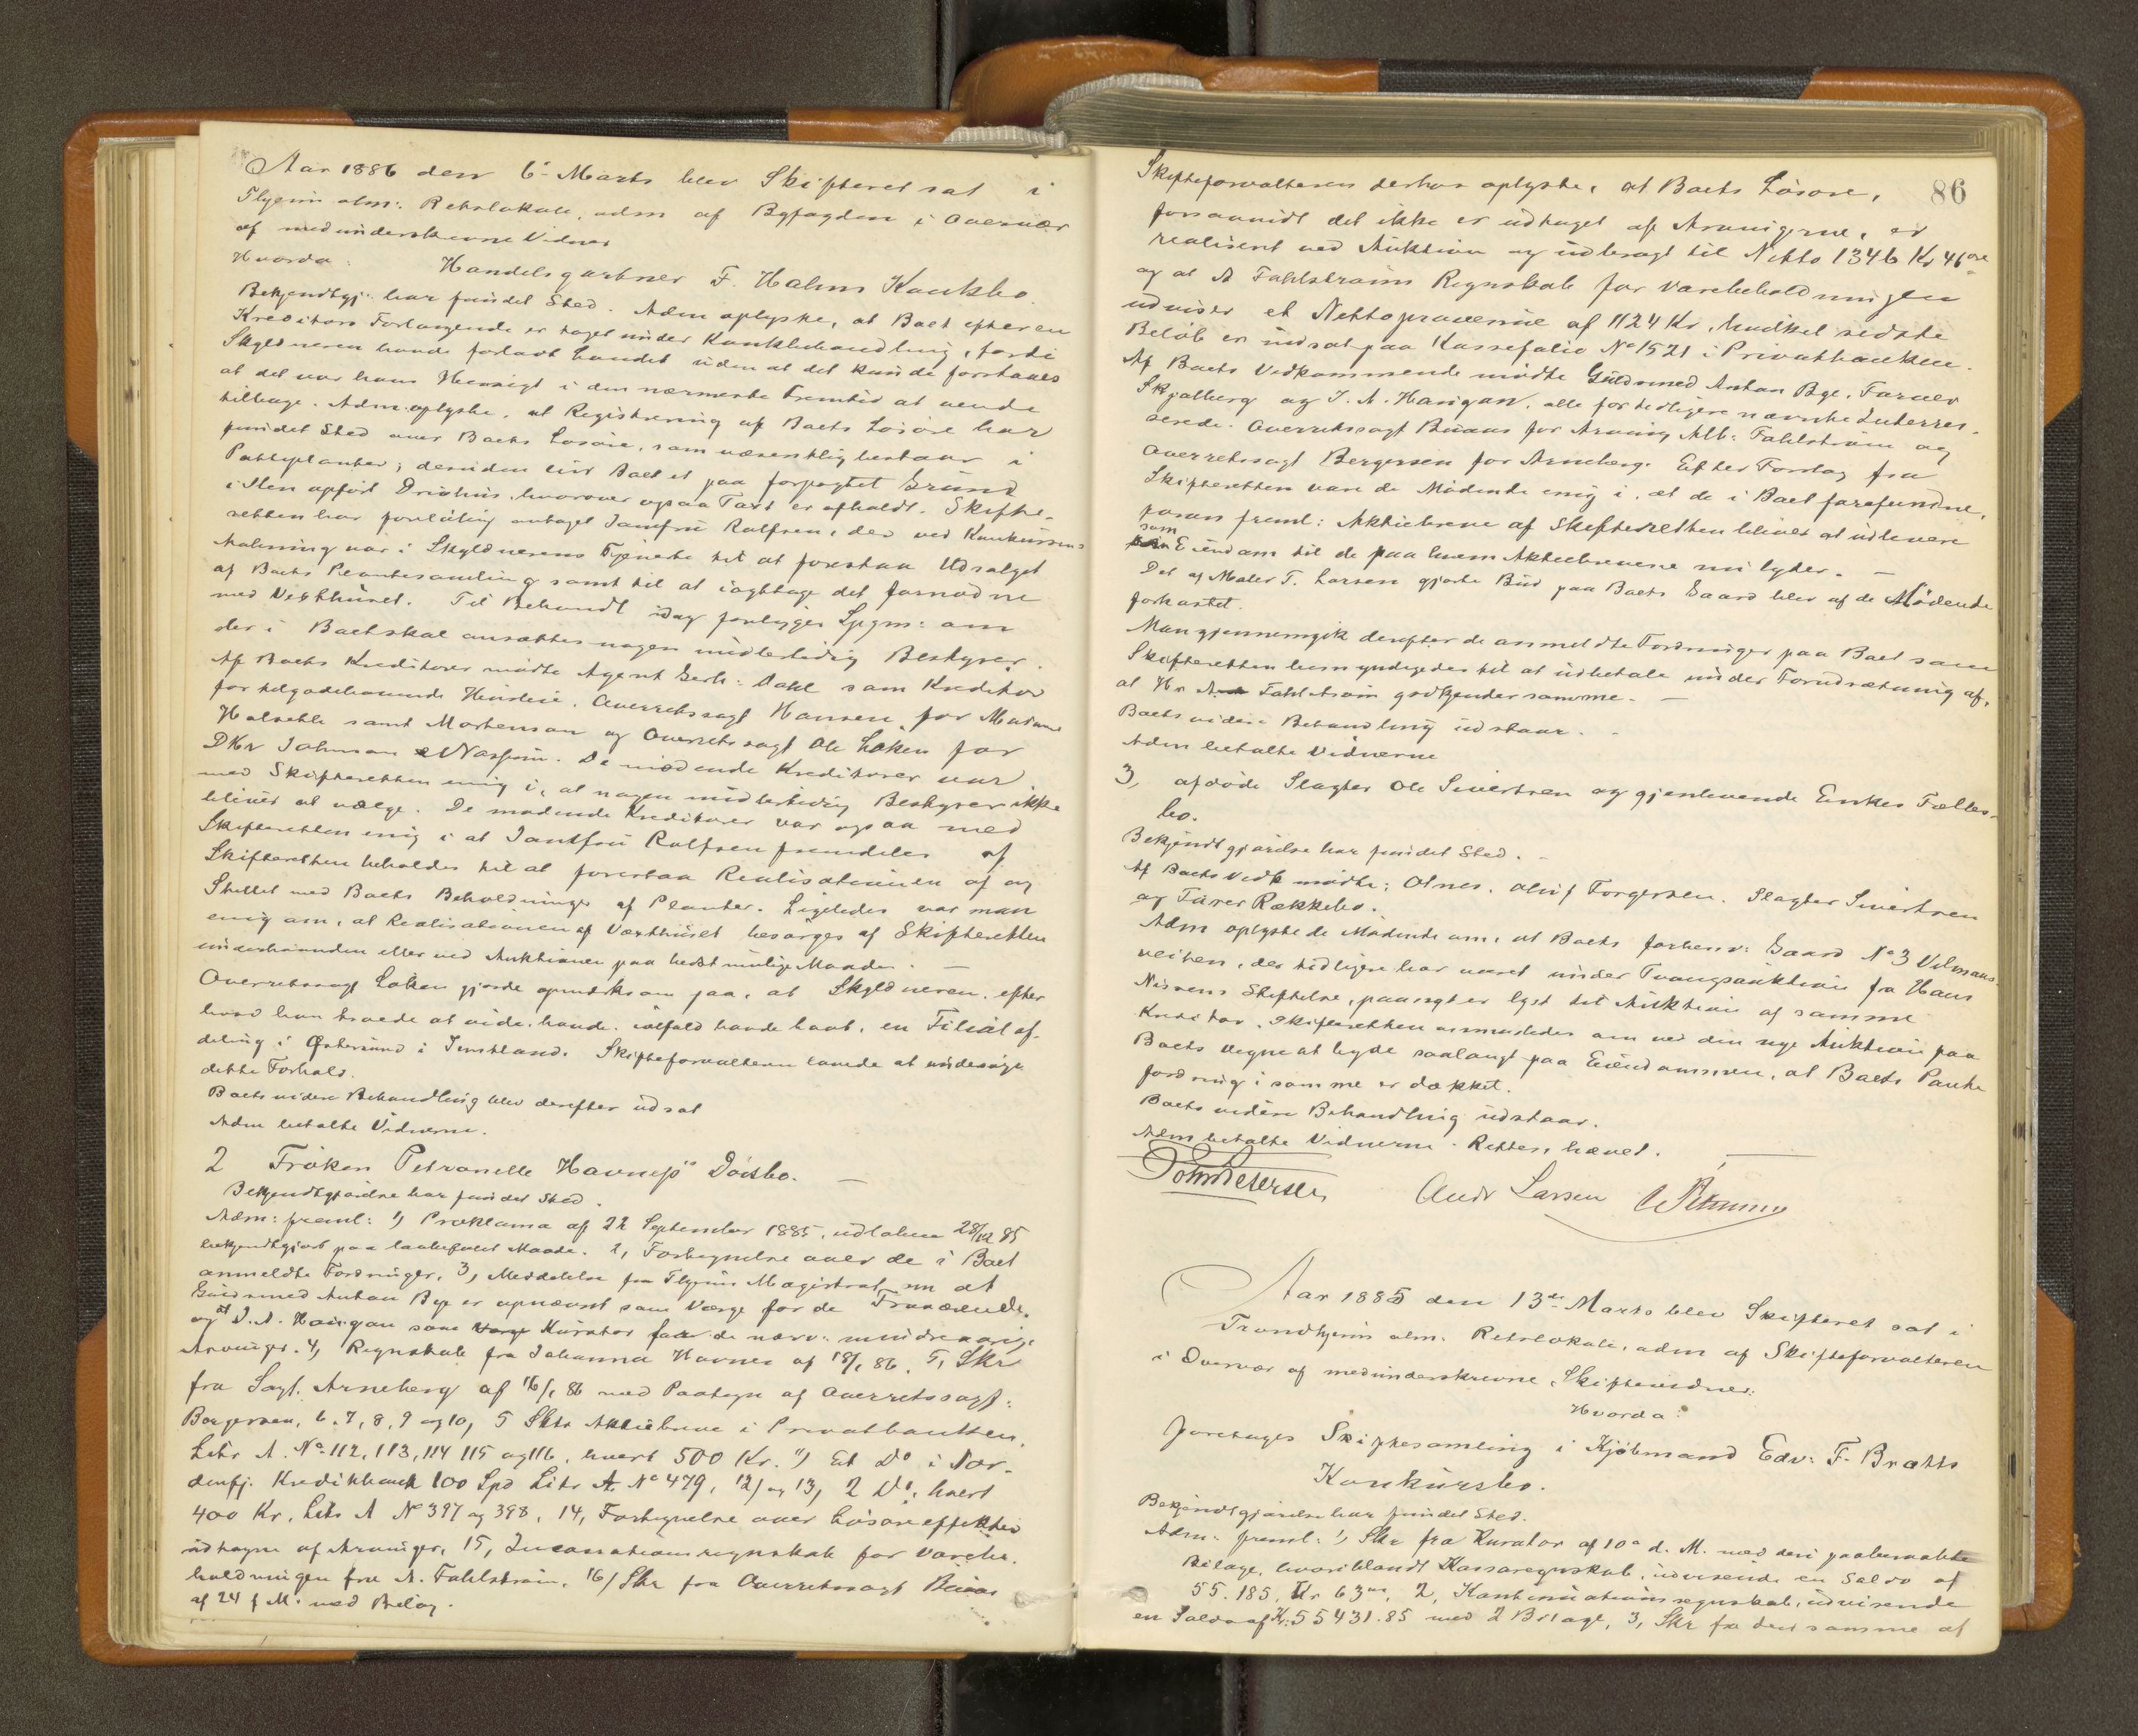 Aar 1886 den 6. Marts blev Skifteret sat i
Thjems alm: Retslokale, adm af Bgfogden i Overvær
af medunderskrevne Vidner
Hvorda:
Handelsgartner F. Holms Konkbo.
Bekjendtgj. har fundet Sted. Adm oplyste, at Boet efter en
Kreditors Forlangende er taget under Konkbehandling, fordi
Skyldneren havde forladt Landet uden at det kunde forstaaes
at det var hans Hensigt i den nærmeste Fremtid at vende
tilbage. Adm. oplyste, at Registrering af Boets Løsøre har
fundet Sted over Boets Løsøre, som væsentlig bestaar i
Potteplanter; desuden eier Boet et paa forpagtet Grund
i Ilen opført Drivhus, hvorover ogsaa Taxt er afholdt. Skifte-
retten har foreløbig antaget Jomfru Rolfsen, der ved Konkursens
Aabning var i Skyldnerens Tjeneste til at forestaa Udsalget
af Boets Plantesamling samt til at iagttage det fornødne
med Vexthuset. Til Behandl idag foreligger Spgm: om
der i Boet skal ansættes nogen midlertidig Bestyrer.
Af Boets Kreditorer mødte Agent Gerh: Dahl som Kreditor
for tilgodehavende Husleie. Overretssagf Hansen for Madame
Halseth samt Mortenson og Overretssagf Ole Løken for
DHr Johnson & Nassum. De mødende Kreditorer var
med Skifteretten enig i, at nogen midlertidig Bestyrer ikke
bliver at vælge. De mødende Kreditorer var ogsaa med
Skifteretten enig i at Jomfru Rolfsen fremdeles af
Skifteretten beholdes til at forestaa Realisationen af og
Stellet med Boets Beholdninger af Planter. Ligeledes var man
enig om, at Realisationen af Vexthuset besørges af Skifteretten
underhaanden eller ved Auktioner paa bedst mulige Maade. —
Overretssagf Løken gjorde opmærksom paa, at Skyldneren, efter
hvad han troede at vide, havde, ialfald havde havt, en Filialaf-
deling i Østersund i Jemtland. Skifteforvalteren lovede at undersøge
dette Forhold.
Boets videre Behandling blev derefter udsat
Adm betalte Vidnerne.
2 Frøken Petronelle Havnes Dødsbo. —
Bekjendtgjørelse har fundet Sted.
Adm: freml: 1) Proklama af 22 September 1885, udløben 28/12 85
bekjendtgjort paa lovbefalet Maade. 2, Fortegnelse over de i Boet
anmeldte Fordringer. 3, Meddelelse fra Thjems Magistrat om at
Guldsmed Anton Bye er opnævnt som Værge for de Fraværende
og at J. A. Haugan som Kurator for de nærv: mindreaarige
Arvinger. 4, Regnskab fra Johanna Havnes af 18/1 86. 5, Skr
fra Sagf. Arneberg af 16/1 86 med Paategn af Overretssagf.
Borgersen, 6. 7, 8, 9 og 10, 5 Stkr Aktiebreve i Privatbanken,
Litr A. No 112, 113, 114 115 og 116, hvert 500 Kr. 11) Et Do i Nor-
denfj. Kreditbank 100 Spd Litr A No 479, 12) og 13, 2 Do, hvert
400 Kr, Litr A No 397 og 398, 14, Fortegnelse over Løsøreeffekter
udtagne af Arvinger, 15, Incassationsregnskab for Varebe-
holdningen fra A. Fahlstrøm, 16/ Skr fra Overretssagf Buaas
af 24 f M. med Bilag.
86
Skifteforvalteren derhos oplyste, at Boets Løsøre,
forsaavidt det ikke er udtaget af Arvingerne, er
realiseret ved Auktion og udbragt til Netto 1346 Kr 46 øre
og at A Fahlstrøms Regnskab for Varebeholdningen
udviser et Nettoprovenue af 1124 Kr, hvilket sidste
Beløb er indsat paa Kassefolio No 1521 i Privatbanken.
Af Boets Vedkommende mødte Guldsmed Anton Bye, Farver
Skjølberg og J. A. Haugan, alle for tidligere nævnte Interes-
serede. Overretssagf Buaas for Arving Alb: Fahlstrøm og
Overretssagf Borgersen for Arneberg. Efter Forslag fra
Skifteretten vare de Mødende enig i, at de i Boet forefundne,
foran freml: Aktiebreve af Skifteretten bliver at udlevere
som Eiendom til de paa hvem Aktiebrevene nu lyder. —
Det af Maler T. Larsen gjorte Bud paa Boets Gaard blev af de Mødende
forkastet.
Man gjennemgik derefter de anmeldte Fordringer paa Boet som
Skifteretten bemyndigedes til at udbetale under Forudsætning af,
at Hr A. Fahlstrøm godkjender samme. —
Boets videre Behandling udstaar. -
Adm betalte Vidnerne
3, afdøde Slagter Ole Sivertsen og gjenlevende Enkes Fælles-
bo.
Bekjendtgjørelse har fundet Sted. -
Af Boets Vedk mødte: Olsnes, Oluf Torgersen. Slagter Sivertsen
og Fører Rækkebo.
Adm oplyste de Mødende om, at Boets forhenv: Gaard No 3 Vilmans-
veiten, der tidligere har været under Tvangsauktion fra Hans
Nissens Stiftelse, paanyt er lyst til Auktion af samme
Kreditor. Skifteretten anmodedes om ved den nye Auktion paa
Boets Vegne at byde saalangt paa Eiendommen, at Boets Pante
fordring i samme er dækket.
Boets videre Behandling udstaar.
Adm betalte Vidnerne. Retten hævet. —
John Petersen Andr Larsen
Aar 1885 den 13de Marts blev Skifteret sat i
Trondhjems alm. Retslokale, adm af Skifteforvalteren
i Overvær af medunderskrevne Skiftevidner:
Hvorda:
foretages Skiftesamling i Kjøbmand Edv: F. Bratts
Konkursbo.
Bekjendtgjørelse har fundet Sted.
Adm: freml: 1, Skr fra Kurator af 10de d. M. med deri paaberaabte
Bilage, hvoriblandt Kassaregnskab, udvisende en Saldo af
55.185. Kr 63 øre, 2, Kontinuationsregnskab, udvisende
en Saldo af Kr: 55431.85 med 2 Bilage, 3, Skr fra den samme af